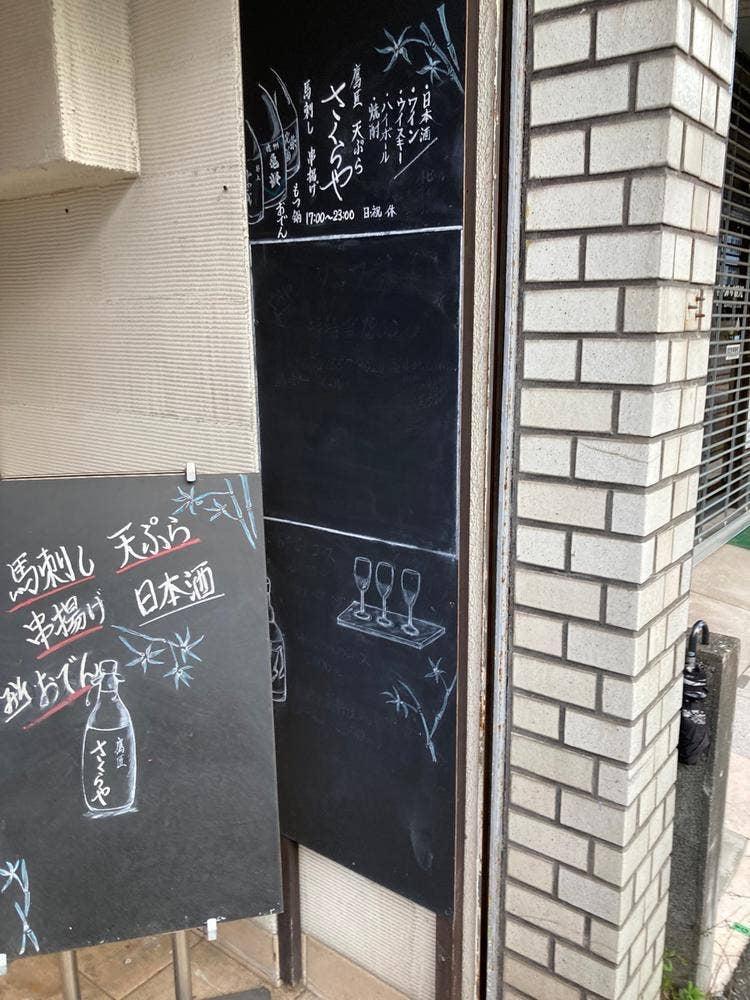 ・日本酒
・ワイン
・ウイスキー
・ハイボール
・焼酎
鷹匠 天ぷら
さくらや
馬刺し 串揚げ
もつ鍋
おでん
17:00〜23:00 日・祝 休
天ぷら
馬刺し
日本酒
串揚げ
おでん
鷹匠
さくらや